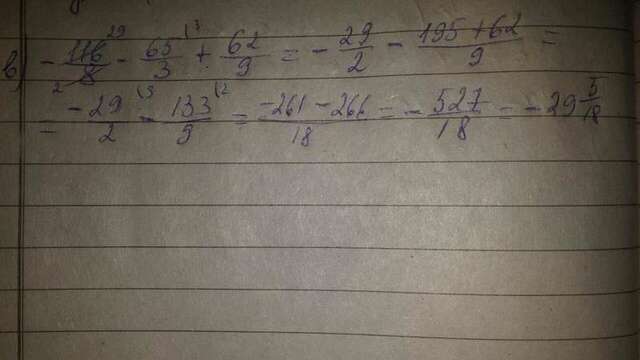 в) - 116/8 - 65/3 + 62/9 = - 29/2 - 195+62/9 =
= -29/2 - 133/9 = -261-266/18 = - 527/18 = - 29 5/18